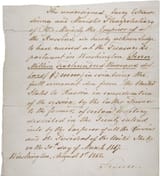 The undersigned, Envoy Extraordinary
and Minister Plenipotentiary
of His Majesty the Emperor of all
the Russias, do hereby acknowledge
to have received at the Treasury De-
partment in Washington, Seven
Million two hundred thousand dol-
lars ($7,200,000) in coin, being the
full amount due from the United
States to Russia in consideration
of the cession, by the latter Power
to the former, of certain territory
described in the Treaty entered
into by the Emperor of all the Russias
and the President of the United States
on the 30th day of March 1867.
Washington, August 1st 1868.